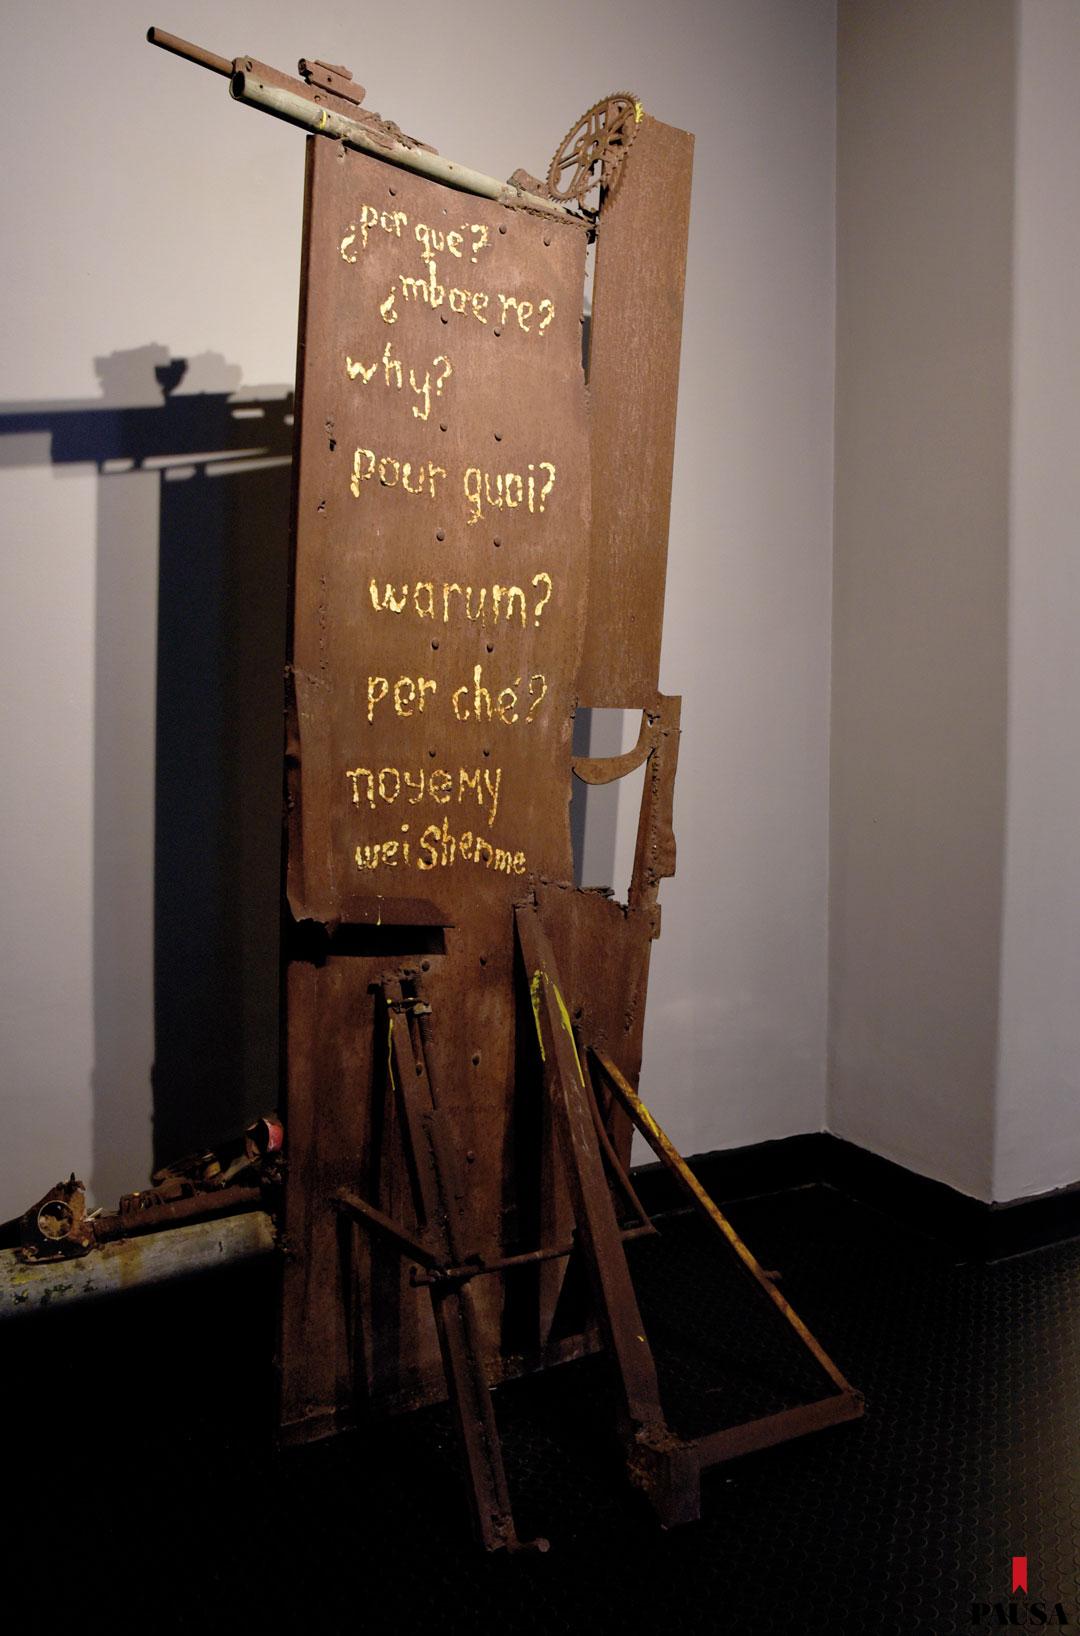 ¿por qué?
¿mbae re?
why?
pour quoi?
warum?
per ché?
ПОУЕМУ
wei Shenme
PAUSA